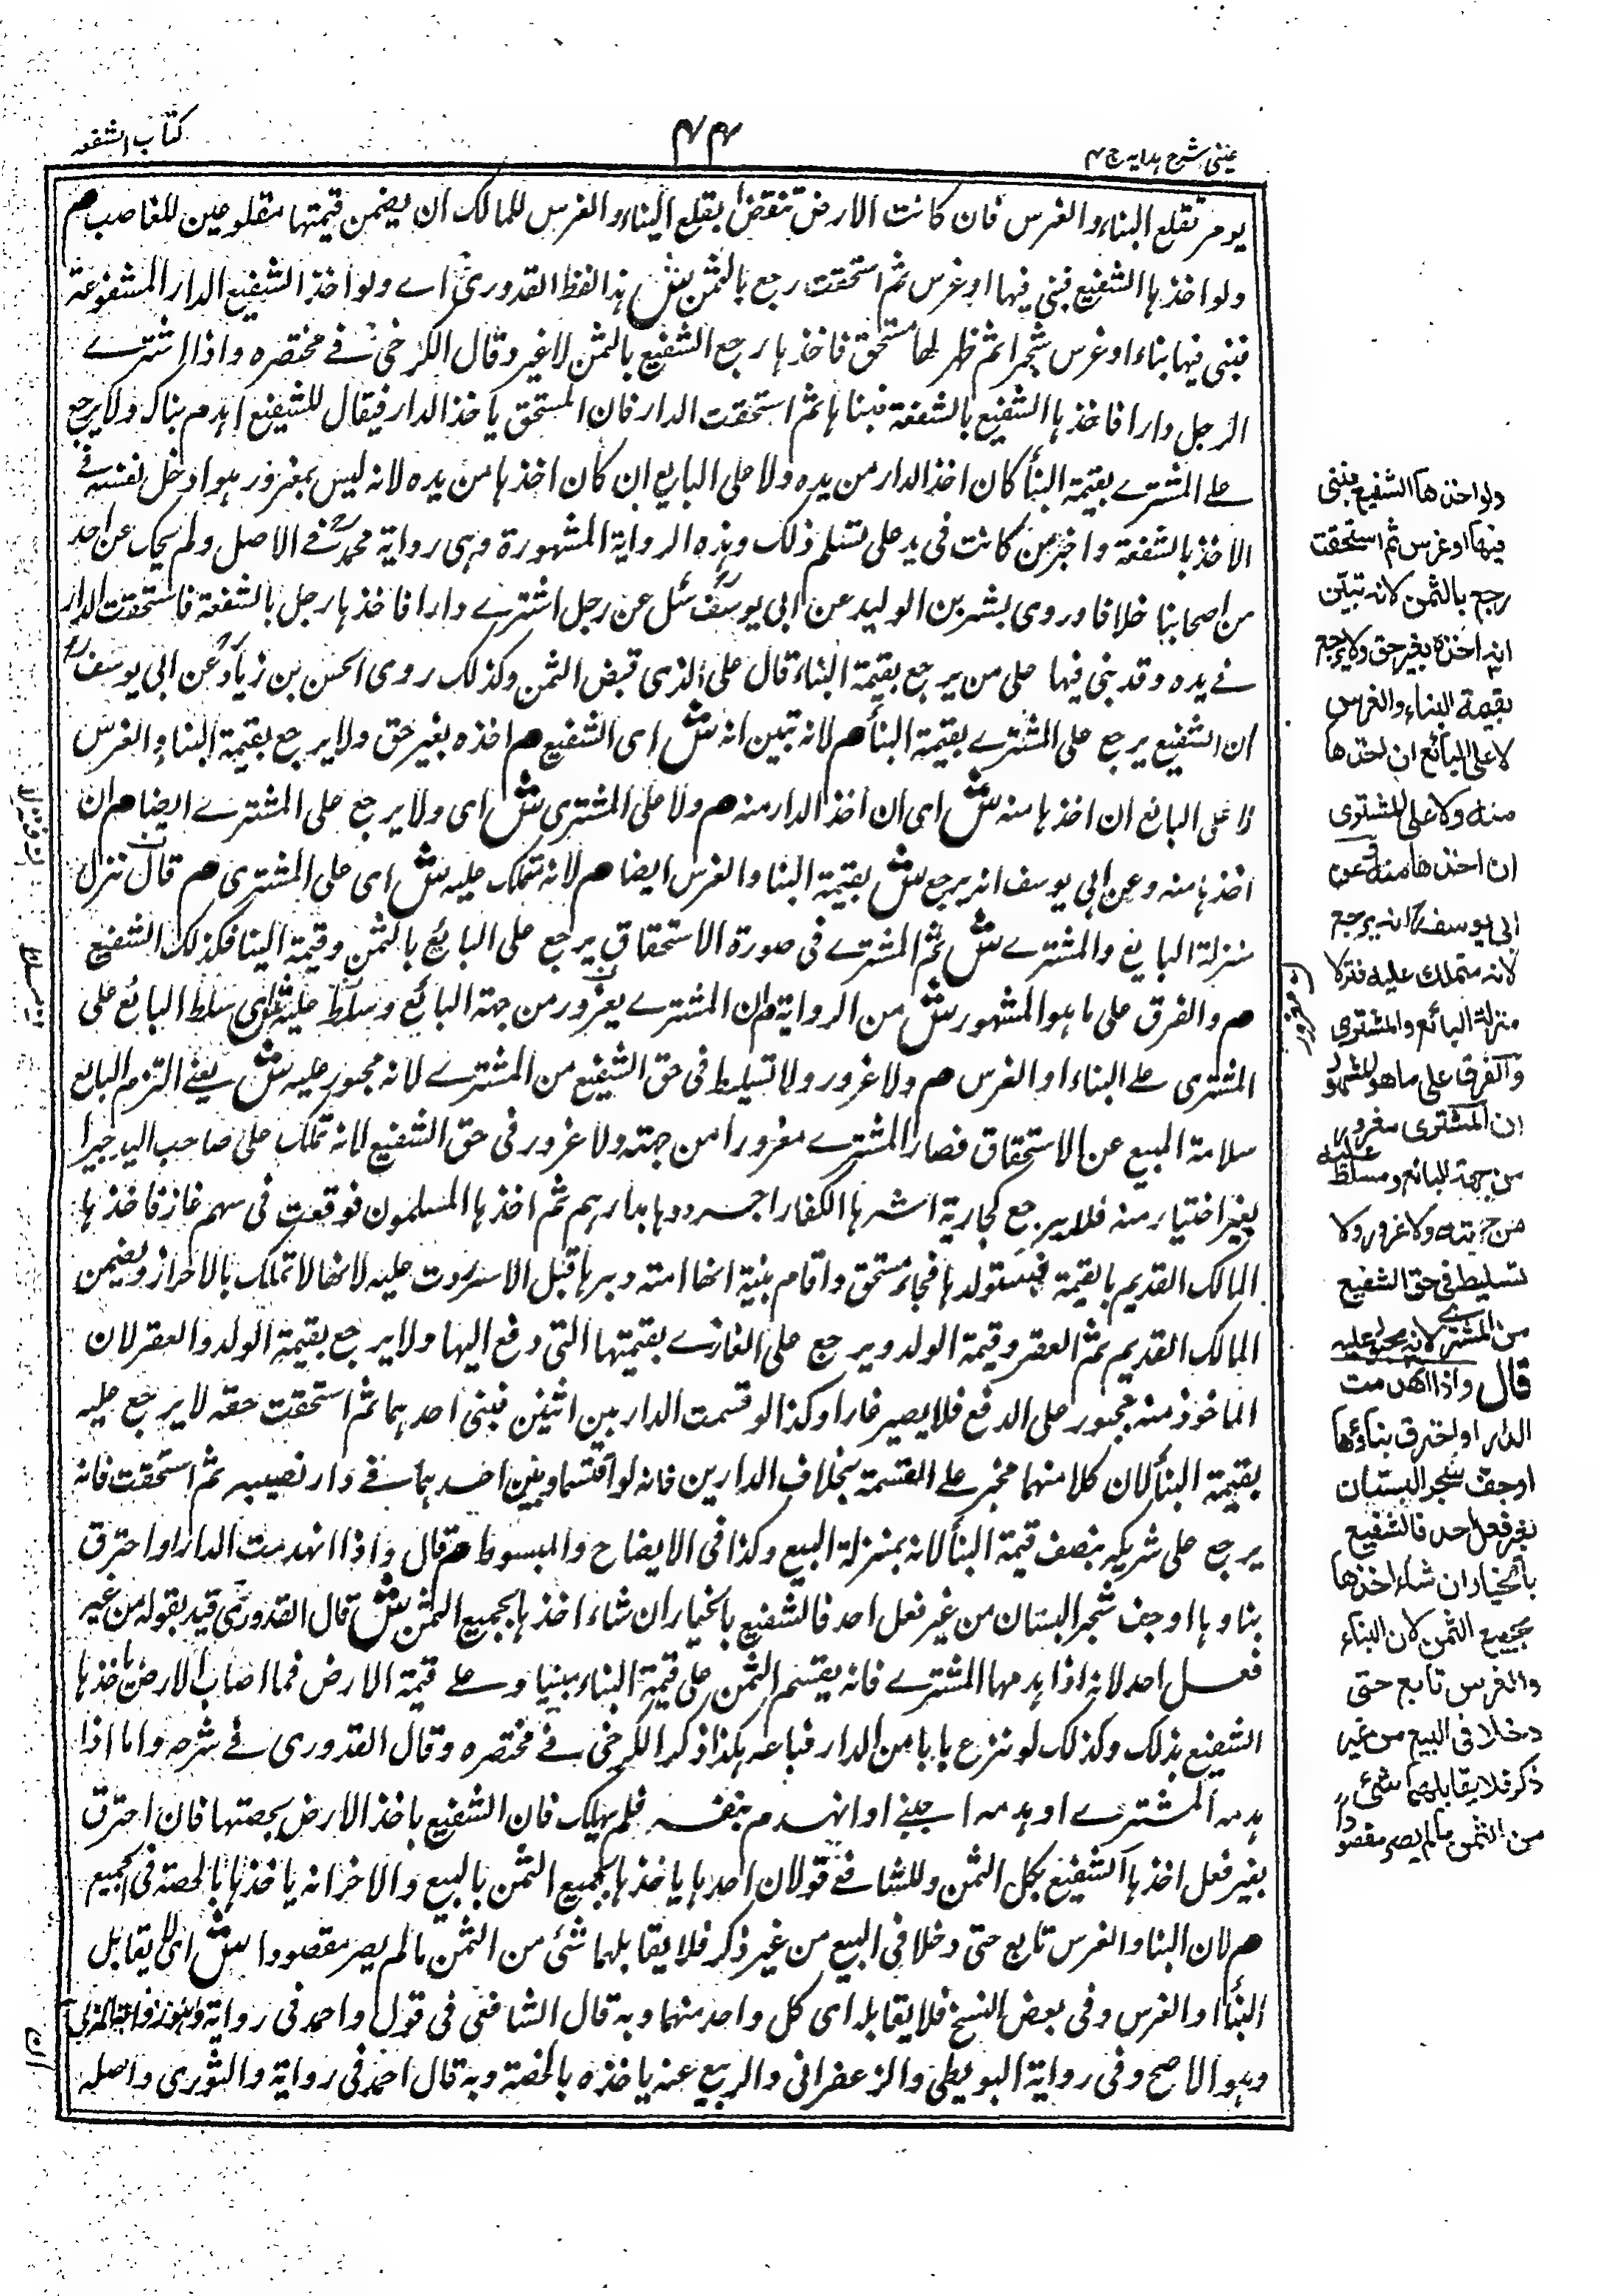 عینی شرح ہدایہ ج ۴
۴۴
کتاب الشفعہ
يوم تقلع البناء والغرس فان كانت الارض تنقض بقلع البناء والغرس للمالك ان يضمن قيمتها مقلوعين للغاصب هم
ولو اخذها الشفيع فبنى فيها او غرس ثم استحقت رجع بالثمن ش هذا لفظ القدوري اے ولو اخذ الشفيع الدار المشفوعة
فبنى فيها بناء او غرس شجرا ثم ظهر لها مستحق فاخذها رجع الشفيع بالثمن لا غير وقال الكرخي في مختصره واذا اشترے
الرجل دارا فاخذها الشفيع بالشفعة فبناها ثم استحقت الدار فان المستحق ياخذ الدار فيقال للشفيع اهدم بناك ولا يرجع
علے المشترے بقيمة البنأ كان اخذ الدار من يده ولا على البايع ان كان اخذها من يده لانه ليس بمغرور هو ادخل نفسه في
الاخذ بالشفعة واجبر من كانت في يده على تسلم ذلك وهذه الرواية المشهورة وهى رواية محمد في الاصل ولم يحك عن احد
من اصحابنا خلافا وروى بشر بن الوليد عن ابى يوسف سئل عن رجل اشترے دارا فاخذها رجل بالشفعة فاستحقت الدار
في يده وقد بنى فيها على من يرجع بقيمة البناء قال على الذى قبض الثمن وكذلك روى الحسن بن زياد عن ابى يوسف
ان الشفيع يرجع على المشترے بقيمة البنأ هم لانه تبين انه ش اى الشفيع هم اخذه بغير حق ولا يرجع بقيمة البناء والغرس
لا على البائع ان اخذها منه ش اى ان اخذ الدار منه هم ولا على المشترى ش اى ولا يرجع على المشترے ايضا هم ان
اخذها منه وعن ابى يوسف انه يرجع ش بقيمة البنا والغرس ايضا هم لانه تملك عليه ش اى على المشترى هم قال نزل
منزلة البايع والمشترے ش ثم المشترے في صورة الاستحقاق يرجع على البايع بالثمن وقيمة البنا فكذلك الشفيع
هم والفرق على ما هو المشهور ش من الرواية هم ان المشترے مغرور من جهة البائع وسلط عليه ش اى سلط البائع على
المشترى علے البناء او الغرس هم ولا غرور ولا تسليط فى حق الشفيع من المشترے لانه مجبور عليه ش يعنے التزم البايع
سلامة المبيع عن الاستحقاق فصار المشترے مغرورا من جهته ولا غرور فى حق الشفيع لانه تملك على صاحب اليد جبرا
بغير اختيار منه فلا يرجع كجارية اسرها الكفار احرزوها بدارهم ثم اخذها المسلمون فوقعت فى سهم غاز فاخذها
المالك القديم بالقيمة فيستولدها فجاء مستحق واقام بينة انها امته دبرها قبل الاسر ردت عليه لانها لا تملك بالاحراز ويضمن
المالك القديم ثم العقر وقيمة الولد ويرجع على الغازے بقيمتها التى دفع اليها ولا يرجع بقيمة الولد والعقر لان
الماخوذ منه مجبور على الدفع فلا يصير غارا وكذا لو قسمت الدار بين اثنين فبنى احدهما ثم استحقت حقه لا يرجع عليه
بقيمة البنأ لان كلا منهما مجبر علے القسمة بخلاف الدارين فانه لو اقتسما وبنى احدهما فے دار نصيبه ثم استحقت فانه
يرجع على شريكه بنصف قيمة البنأ لانه بمنزلة البيع وكذا فى الايضاح والمبسوط هم قال واذا انهدمت الدار او احترق
بناوها او جف شجر البستان من غير فعل احد فالشفيع بالخيار ان شاء اخذها بجميع الثمن ش قال القدورى قيد بقوله من غير
فعل احد لانه اذا هدمها المشترے فانه يقسم الثمن على قيمة البناء مبنيا وعلے قيمة الارض فما اصاب الارض ياخذها
الشفيع بذلك وكذلك لو نزع بابا من الدار فباعه هكذا ذكر الكرخى فے مختصره وقال القدورى فے شرحه واما اذا
هدمه المشترے او هدمه اجنبے او انهدم بنفسه فلم يهلك فان الشفيع ياخذ الارض بحصتها فان احترق
بغير فعل اخذها الشفيع بكل الثمن وللشافعے قولان احدها ياخذها بجميع الثمن بالبيع والاخر انه ياخذها بالحصة فى الجميع
هم لان البنا والغرس تابع حتى دخلا فى البيع من غير ذكر فلا يقابلهما شئ من الثمن ما لم يصر مقصودا ش اى لا يقابل
البنأ او الغرس وفى بعض النسخ فلا يقابله اى كل واحد منهما وبه قال الشافعى فى قول واحمد فى رواية
وهو الاصح وفى رواية البويطى والزعفرانى والربيع عنه ياخذه بالحصة وبه قال احمد فى رواية والثورى واصله
ولو اخذها الشفيع فبنى
فيها او غرس ثم استحقت
رجع بالثمن لانه تبين
انه اخذه بغير حق ولا يرجع
بقيمة البناء والغرس
لا على البائع ان اخذها
منه ولا على المشترى
ان اخذها منه وعن
ابى يوسف انه يرجع
لانه متملك عليه فنزلا
منزلة البائع والمشترى
والفرق على ما هو المشهور
ان المشترى مغرور
من جهة البائع ومسلط عليه
من جهته ولا غرور ولا
تسليط فى حق الشفيع
من المشترے لانه مجبور عليه
قال واذا انهدمت
الدار او احترق بناؤها
او جف شجر البستان
بغير فعل احد فالشفيع
بالخيار ان شاء اخذها
بجميع الثمن لان البناء
والغرس تابع حتى
دخلا فى البيع من غير
ذكر فلا يقابلهما شئ
من الثمن ما لم يصر مقصودا